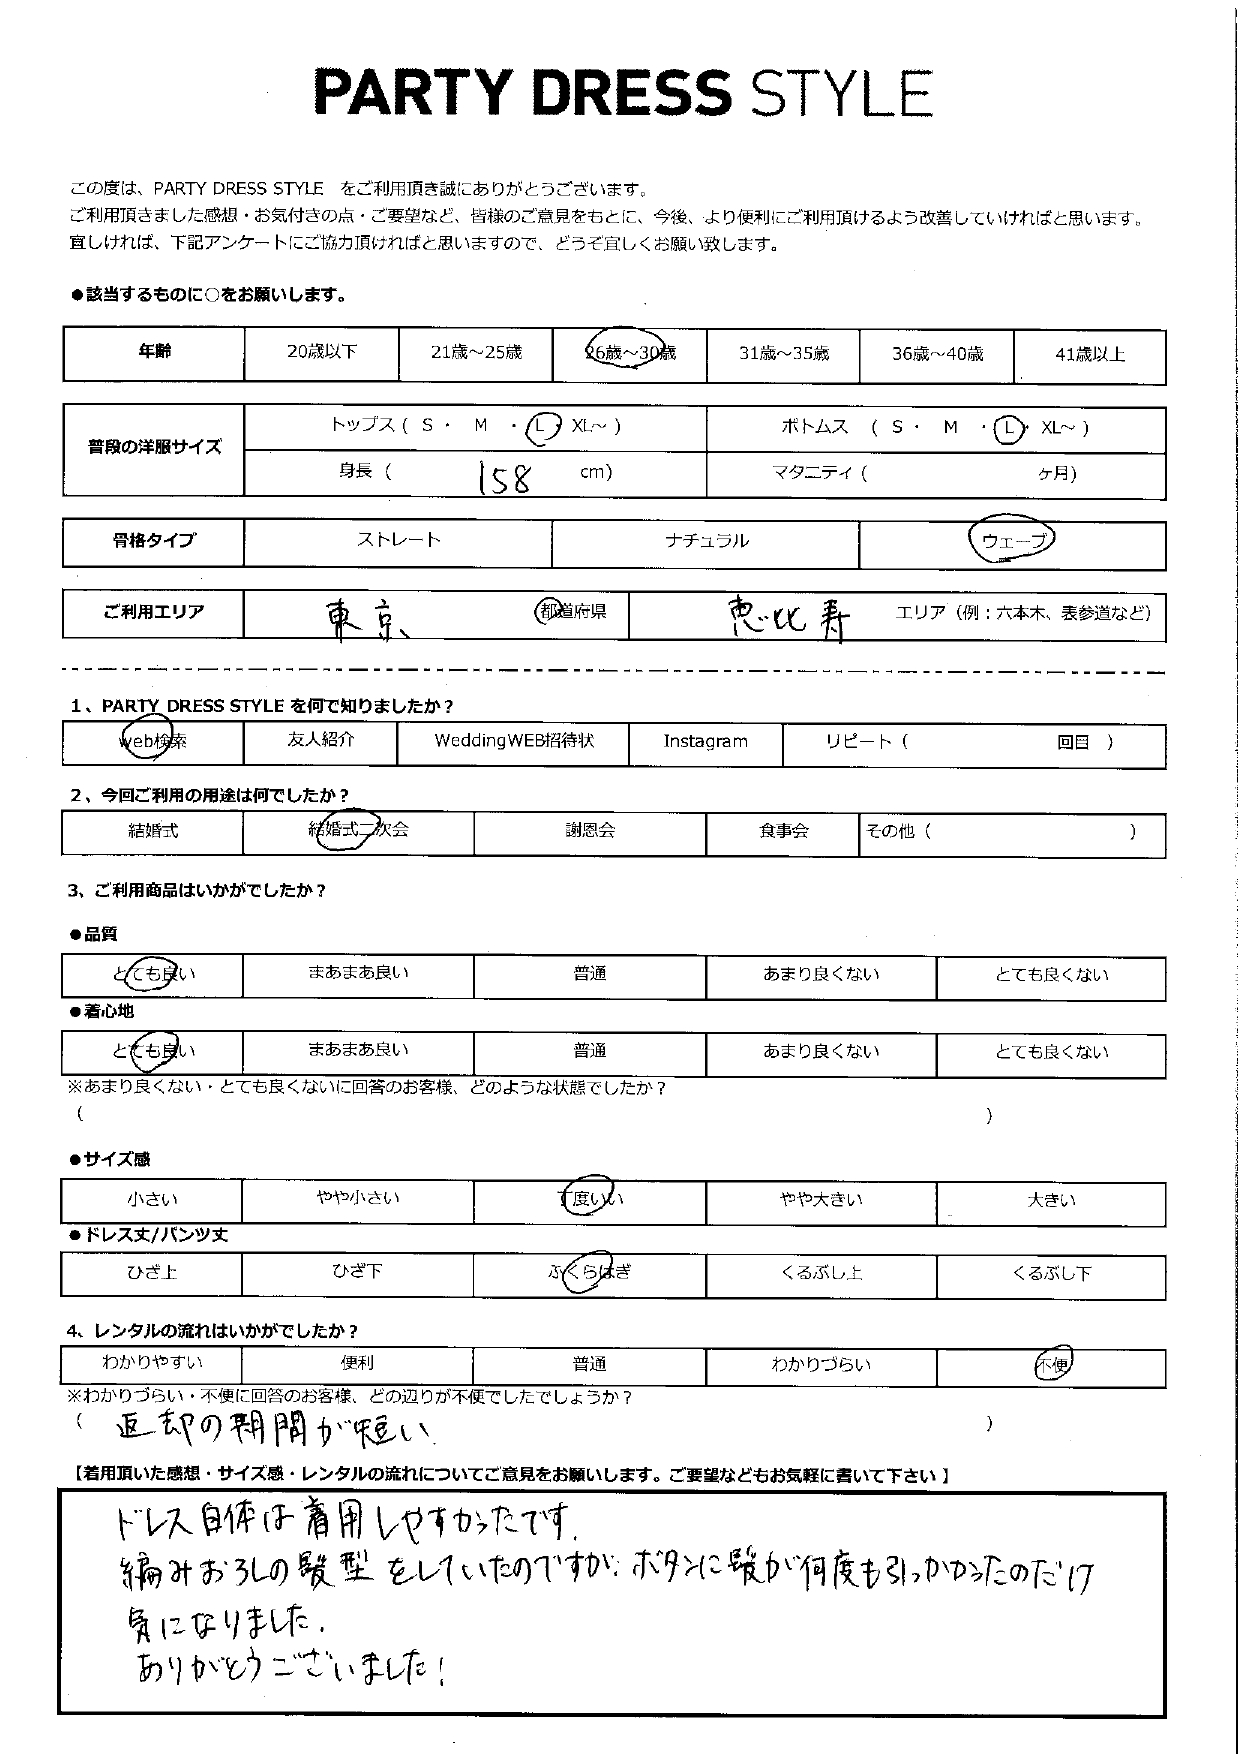 PARTY DRESS STYLE
この度は、PARTY DRESS STYLE をご利用頂き誠にありがとうございます。
ご利用頂きました感想・お気付きの点・ご要望など、皆様のご意見をもとに、今後、より便利にご利用頂けるよう改善していければと思います。
宜しければ、下記アンケートにご協力頂ければと思いますので、どうぞ宜しくお願い致します。
●該当するものに○をお願いします。
年齢 20歳以下 21歳～25歳 26歳～30歳 31歳～35歳 36歳～40歳 41歳以上
普段の洋服サイズ トップス ( S ・ M ・ L ・ XL～ ) ボトムス ( S ・ M ・ L ・ XL～ )
身長 ( 158 cm) マタニティ ( ヶ月)
骨格タイプ ストレート ナチュラル ウェーブ
ご利用エリア 東京、 都道府県 恵比寿 エリア（例：六本木、表参道など）
1、PARTY DRESS STYLE を何で知りましたか？
web検索 友人紹介 WeddingWEB招待状 Instagram リピート ( 回目 )
2、今回ご利用の用途は何でしたか？
結婚式 結婚式二次会 謝恩会 食事会 その他 ( )
3、ご利用商品はいかがでしたか？
●品質
とても良い まあまあ良い 普通 あまり良くない とても良くない
●着心地
とても良い まあまあ良い 普通 あまり良くない とても良くない
※あまり良くない・とても良くないに回答のお客様、どのような状態でしたか？
( )
●サイズ感
小さい やや小さい 丁度いい やや大きい 大きい
●ドレス丈/パンツ丈
ひざ上 ひざ下 ふくらはぎ くるぶし上 くるぶし下
4、レンタルの流れはいかがでしたか？
わかりやすい 便利 普通 わかりづらい 不便
※わかりづらい・不便に回答のお客様、どの辺りが不便でしたでしょうか？
( 返却の期間が短い )
【着用頂いた感想・サイズ感・レンタルの流れについてご意見をお願いします。ご要望などもお気軽に書いて下さい】
ドレス自体は着用しやすかったです.
編みおろしの髪型をしていたのですが、ボタンに髪が何度も引っかかったのだけ
気になりました.
ありがとうございました！